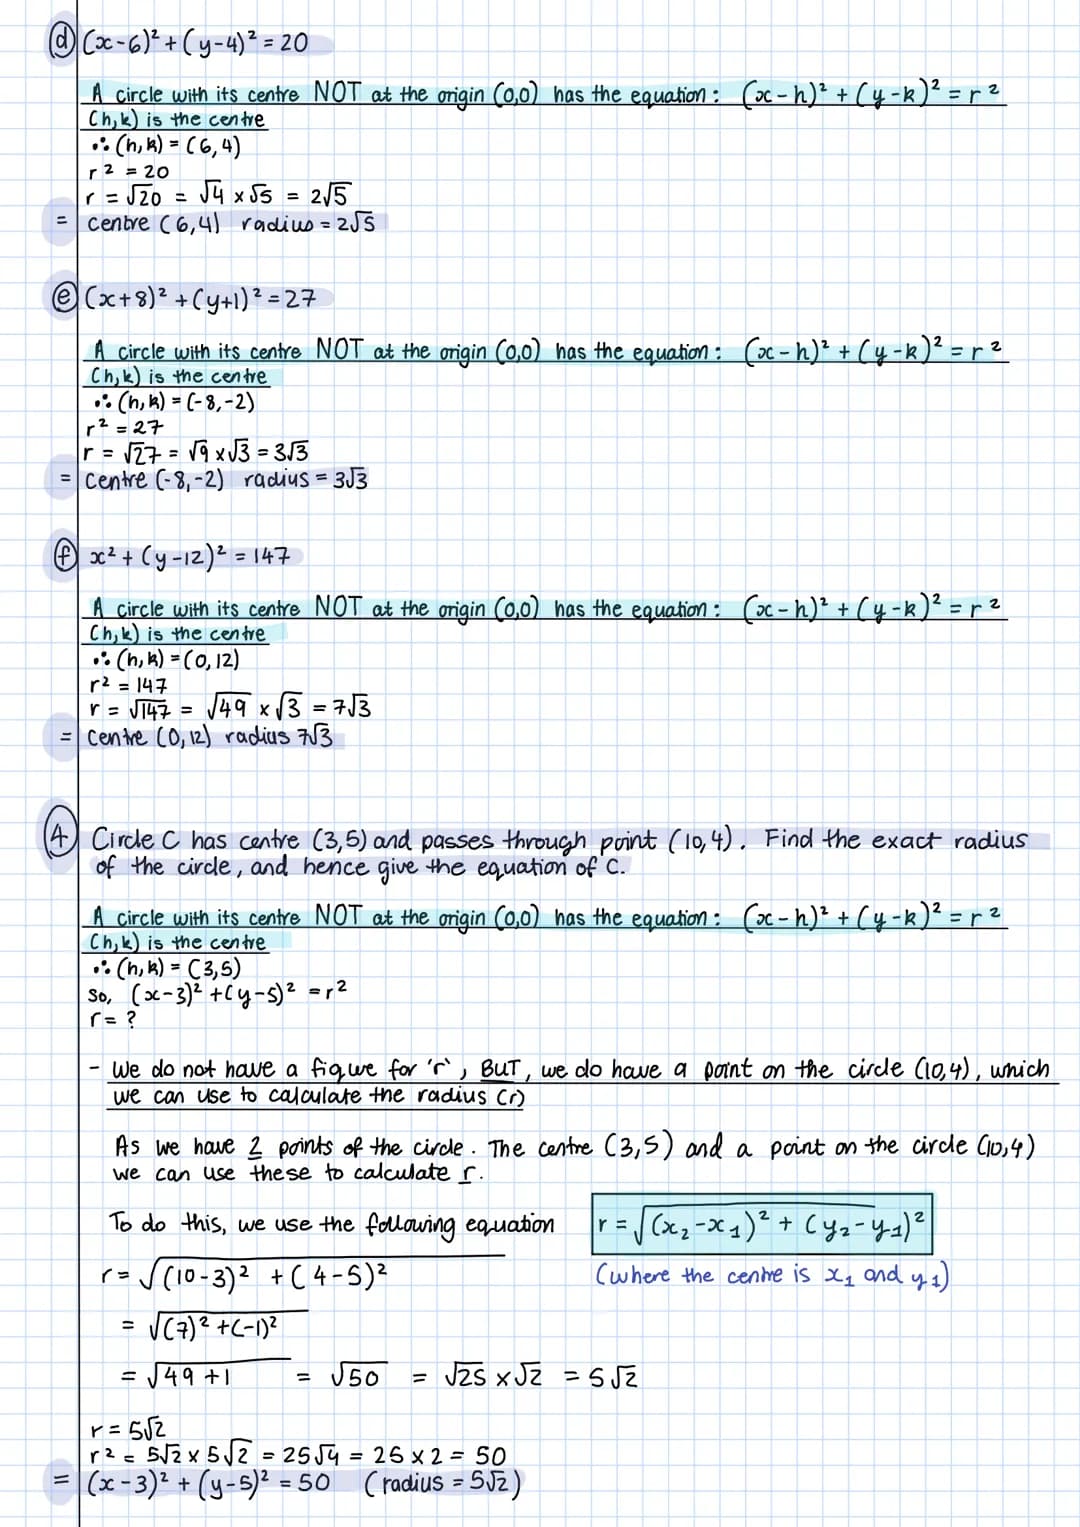 (d) (x-6)² + (y-4)² = 20
A circle with its centre NOT at the origin (0,0) has the equation: (x-h)² + (y-k)² = r²
(h,k) is the centre
∴ (h,k) = (6,4)
r² = 20
r = √20 = √4 × √5 = 2√5
= centre (6,4) radius = 2√5
(e) (x+8)² + (y+1)² = 27
A circle with its centre NOT at the origin (0,0) has the equation: (x-h)² + (y-k)² = r²
(h,k) is the centre
∴ (h,k) = (-8,-2)
r² = 27
r = √27 = √9 × √3 = 3√3
= Centre (-8,-2) radius = 3√3
(f) x² + (y-12)² = 147
A circle with its centre NOT at the origin (0,0) has the equation: (x-h)² + (y-k)² = r²
(h,k) is the centre
∴ (h,k) = (0,12)
r² = 147
r = √147 = √49 × √3 = 7√3
= centre (0,12) radius 7√3
(4) Circle C has centre (3,5) and passes through point (10,4). Find the exact radius
of the circle, and hence give the equation of C.
A circle with its centre NOT at the origin (0,0) has the equation: (x-h)² + (y-k)² = r²
(h,k) is the centre
∴ (h,k) = (3,5)
So, (x-3)² + (y-5)² = r²
r = ?
- We do not have a figure for 'r', BUT, we do have a point on the circle (10,4), which
we can use to calculate the radius (r)
As we have 2 points of the circle. The centre (3,5) and a point on the circle (10,4)
we can use these to calculate r.
To do this, we use the following equation r = √(x₂-x₁)² + (y₂-y₁)²
(where the centre is x₁ and y₁)
r = √(10-3)² + (4-5)²
= √(7)² + (-1)²
= √49 + 1 = √50 = √25 × √2 = 5√2
r = 5√2
r² = 5√2 × 5√2 = 25√4 = 25 × 2 = 50
= (x-3)² + (y-5)² = 50 (radius = 5√2)